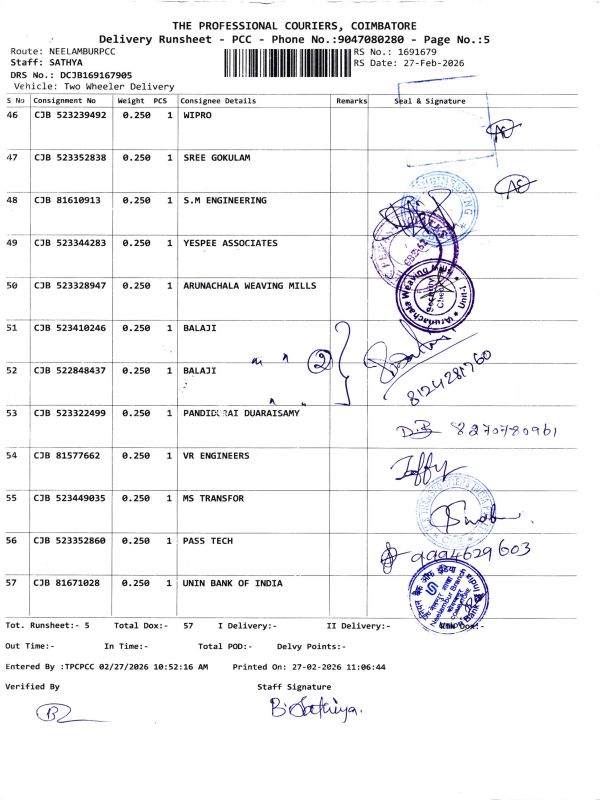 THE PROFESSIONAL COURIERS, COIMBATORE
Delivery Runsheet - PCC - Phone No.:9047080280 - Page No.:5
Route: NEELAMBURPCC
RS No.: 1691679
Staff: SATHYA
RS Date: 27-Feb-2026
DRS No.: DCJB169167905
Vehicle: Two Wheeler Delivery
S No Consignment No Weight PCS Consignee Details Remarks Seal & Signature
46 CJB 523239492 0.250 1 WIPRO
47 CJB 523352838 0.250 1 SREE GOKULAM
48 CJB 81610913 0.250 1 S.M ENGINEERING
49 CJB 523344283 0.250 1 YESPEE ASSOCIATES
50 CJB 523328947 0.250 1 ARUNACHALA WEAVING MILLS
Arunachala Weaving Mills
Unit-1
51 CJB 523410246 0.250 1 BALAJI
2
52 CJB 522848437 0.250 1 BALAJI
8124281760
53 CJB 523322499 0.250 1 PANDIDURAI DUARAISAMY
8270780961
54 CJB 81577662 0.250 1 VR ENGINEERS
55 CJB 523449035 0.250 1 MS TRANSFOR
56 CJB 523352860 0.250 1 PASS TECH
9994629603
57 CJB 81671028 0.250 1 UNIN BANK OF INDIA
Neelambur Branch
Tot. Runsheet:- 5 Total Dox:- 57 I Delivery:- II Delivery:- Dox:-
Out Time:- In Time:- Total POD:- Delvy Points:-
Entered By :TPCPCC 02/27/2026 10:52:16 AM Printed On: 27-02-2026 11:06:44
Verified By Staff Signature
B. Sathiya.